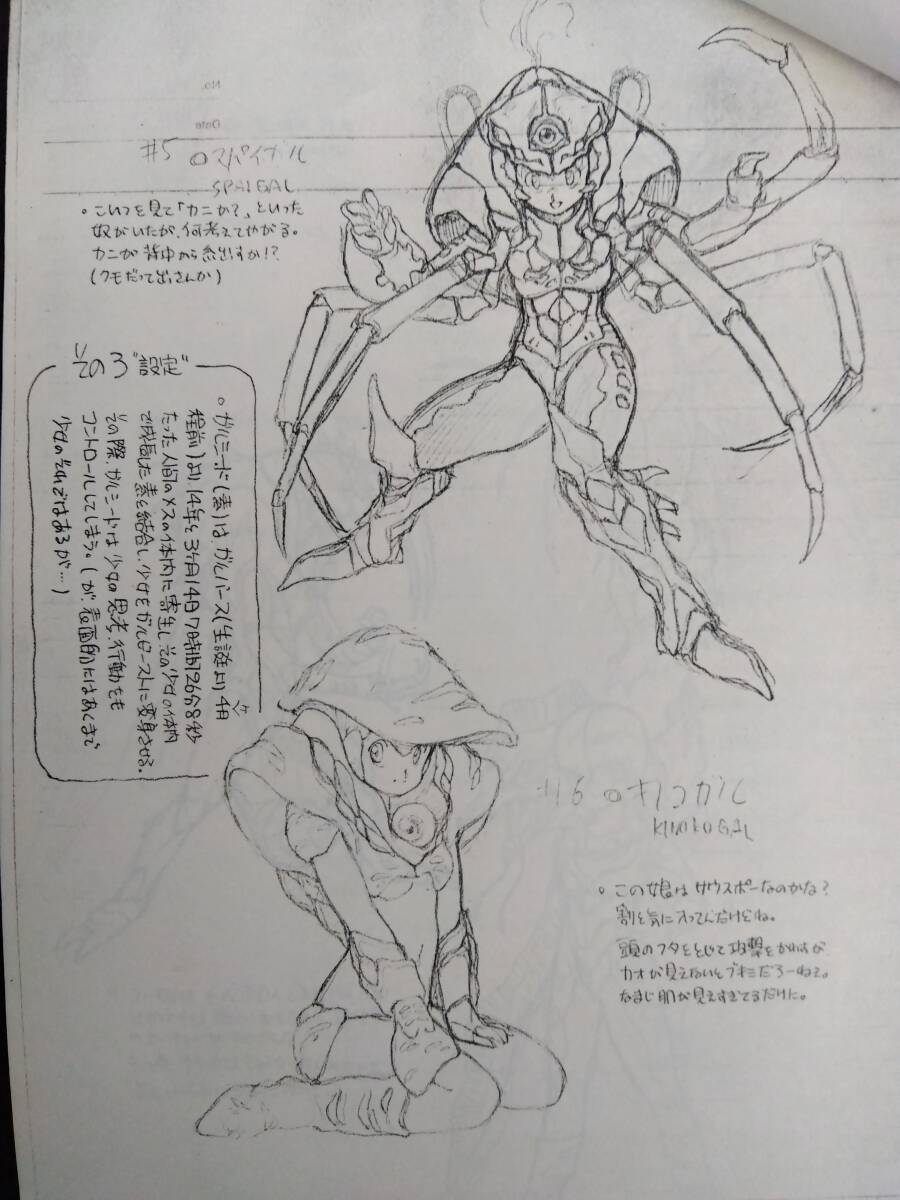 No.
Date
#5 ロスパイガル
SPAIGAL
。こいつを見て「カニか?」といった
奴がいたが、何考えてやがる。
カニが背中から糸出すか!?
(クモだって出さんか)
その3 "設定"
。ガルシード(素)は、ガルバース(生誕より4ヶ月
程前)より14年と3ヶ月14日7時間26分8秒
たった人間のメスの体内に寄生し、その少女の体内
で成長した素と結合し、少女をガルビーストに変身させる。
その際、ガルシードは少女の思考、行動をも
コントロールしてしまう。(が、表面的にはあくまで
少女のそれではあるが…)
#16 ロキノコガル
KINKOGAL
。この娘はサウスポーなのかな?
割と気に入ってんだけどね。
頭のフタをとじて攻撃をかわすが
カオが見えないとブキミだろーねえ。
なまじ肌が見えすぎてるだけに。